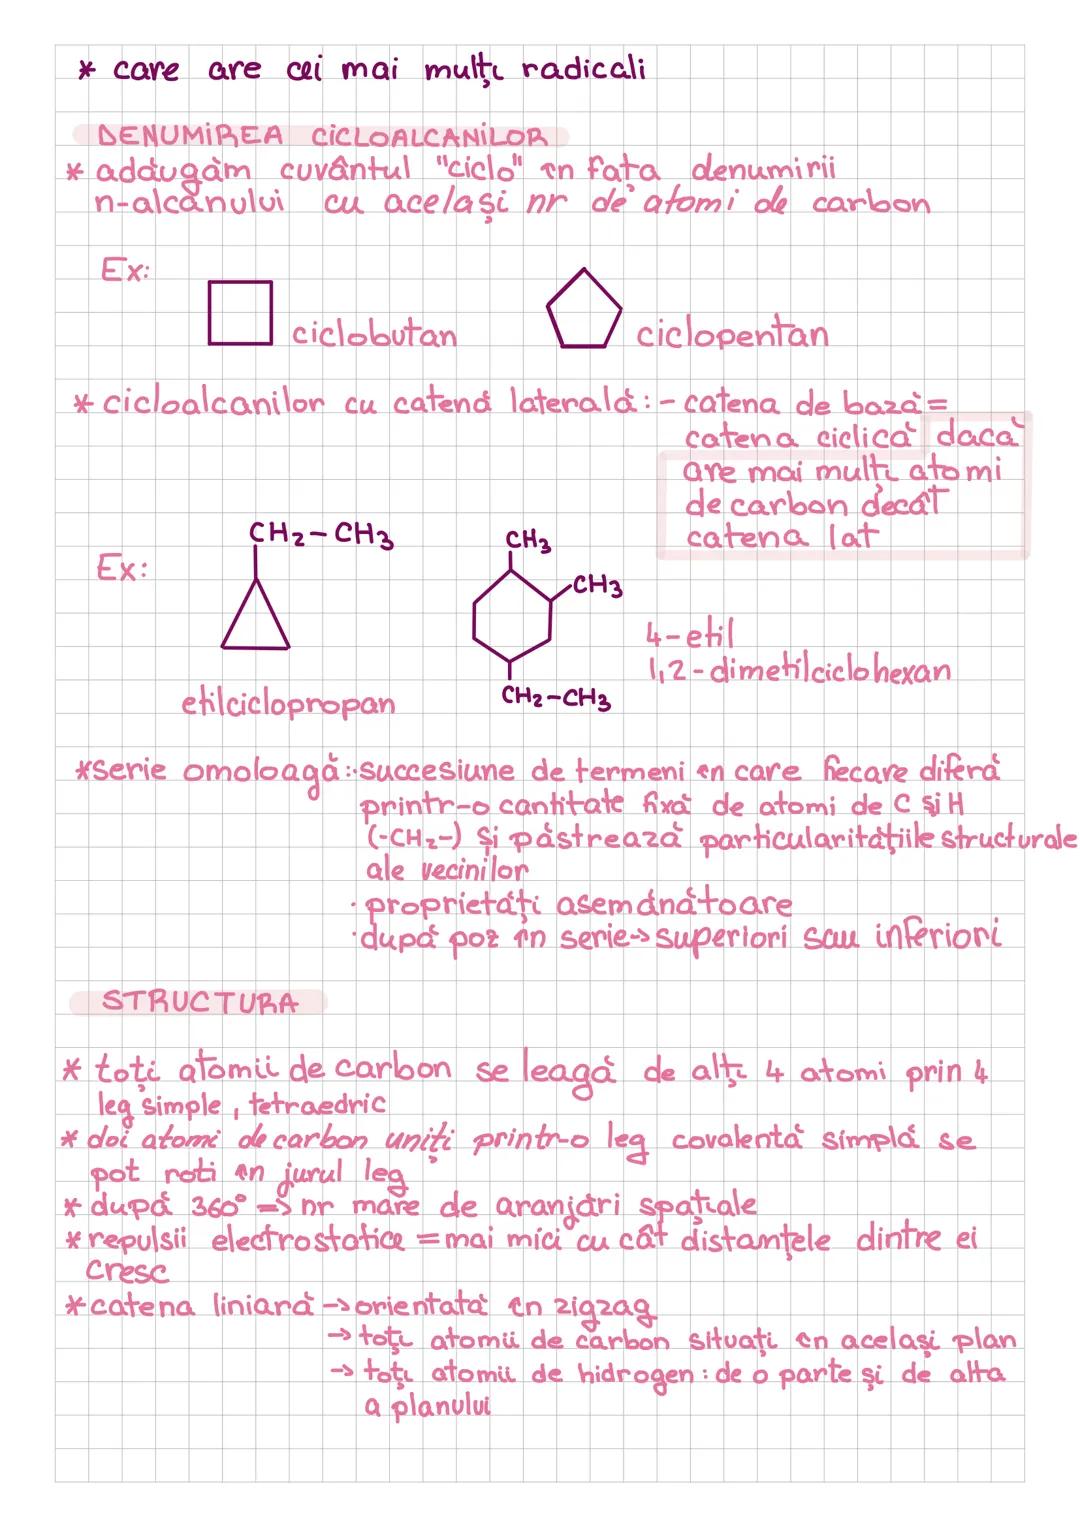 * care are cei mai mulți radicali
DENUMIREA CICLOALCANILOR
* adăugăm cuvântul "ciclo" în fața denumirii
n-alcanului cu același nr de atomi de carbon
Ex:
ciclobutan
ciclopentan
* cicloalcanilor cu catenă laterală: - catena de bază =
catena ciclică dacă
are mai mulți atomi
de carbon decât
catena lat
Ex:
CH2-CH3
CH3
CH3
CH2-CH3
etilciclopropan
4-etil
1,2-dimetilciclohexan
*serie omoloagă: ·succesiune de termeni în care fiecare diferă
printr-o cantitate fixă de atomi de C și H
(-CH2-) și păstrează particularitățiile structurale
ale vecinilor
· proprietăți asemănătoare
·după poz în serie→superiori sau inferiori
STRUCTURA
* toți atomii de carbon se leagă de alți 4 atomi prin 4
leg simple, tetraedric
* doi atomi de carbon uniți printr-o leg covalentă simplă se
pot roti în jurul leg
* după 360° => nr mare de aranjări spațiale
* repulsii electrostatice = mai mici cu cât distanțele dintre ei
cresc
* catena liniară → orientată în zigzag
→ toți atomii de carbon situați în același plan
→ toți atomii de hidrogen: de o parte și de alta
a planului